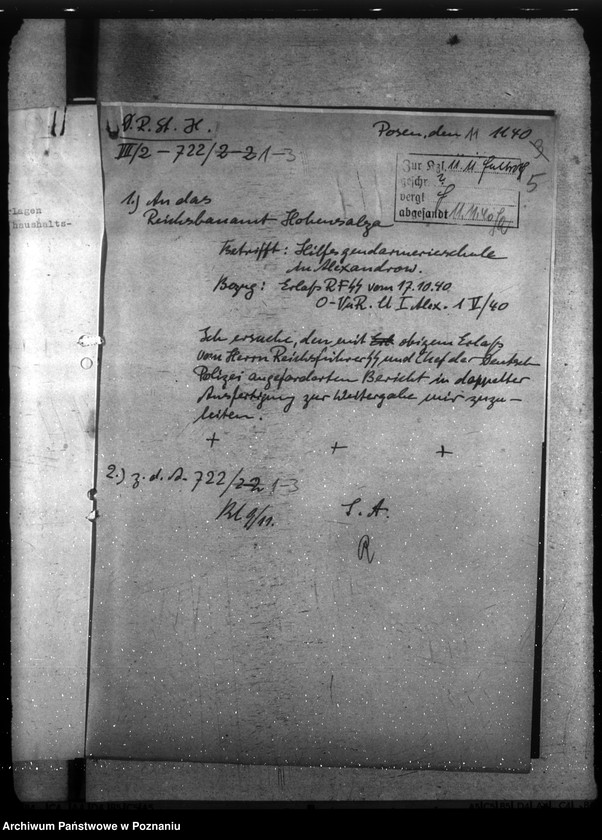 D. R. St. H.
Posen, den 11 11 40
III/2 – 722/2-2 1-3
5
Zur Kzl. 11. 11
geschr.
vergl.
abgesandt 11.11.40
1.) An das
Reichsbauamt Hohensalza
Betrifft: Hilfsgendarmerieschule
in Alexandrow.
Bezug: Erlaß RFSS vom 17.10.40
O-VuR. U I Alex. 1 V/40
Ich ersuche, den mit obigem Erlaß
vom Herrn Reichsführer SS und Chef der Deutsch
Polizei angeforderten Bericht in doppelter
Ausfertigung zur Weitergabe mir zuzu-
leiten.
+ + +
2.) z. d. A. 722/2-2 1-3
9/11.
I. A.
R
rlagen
haushalts-
Archiwum Państwowe w Poznaniu